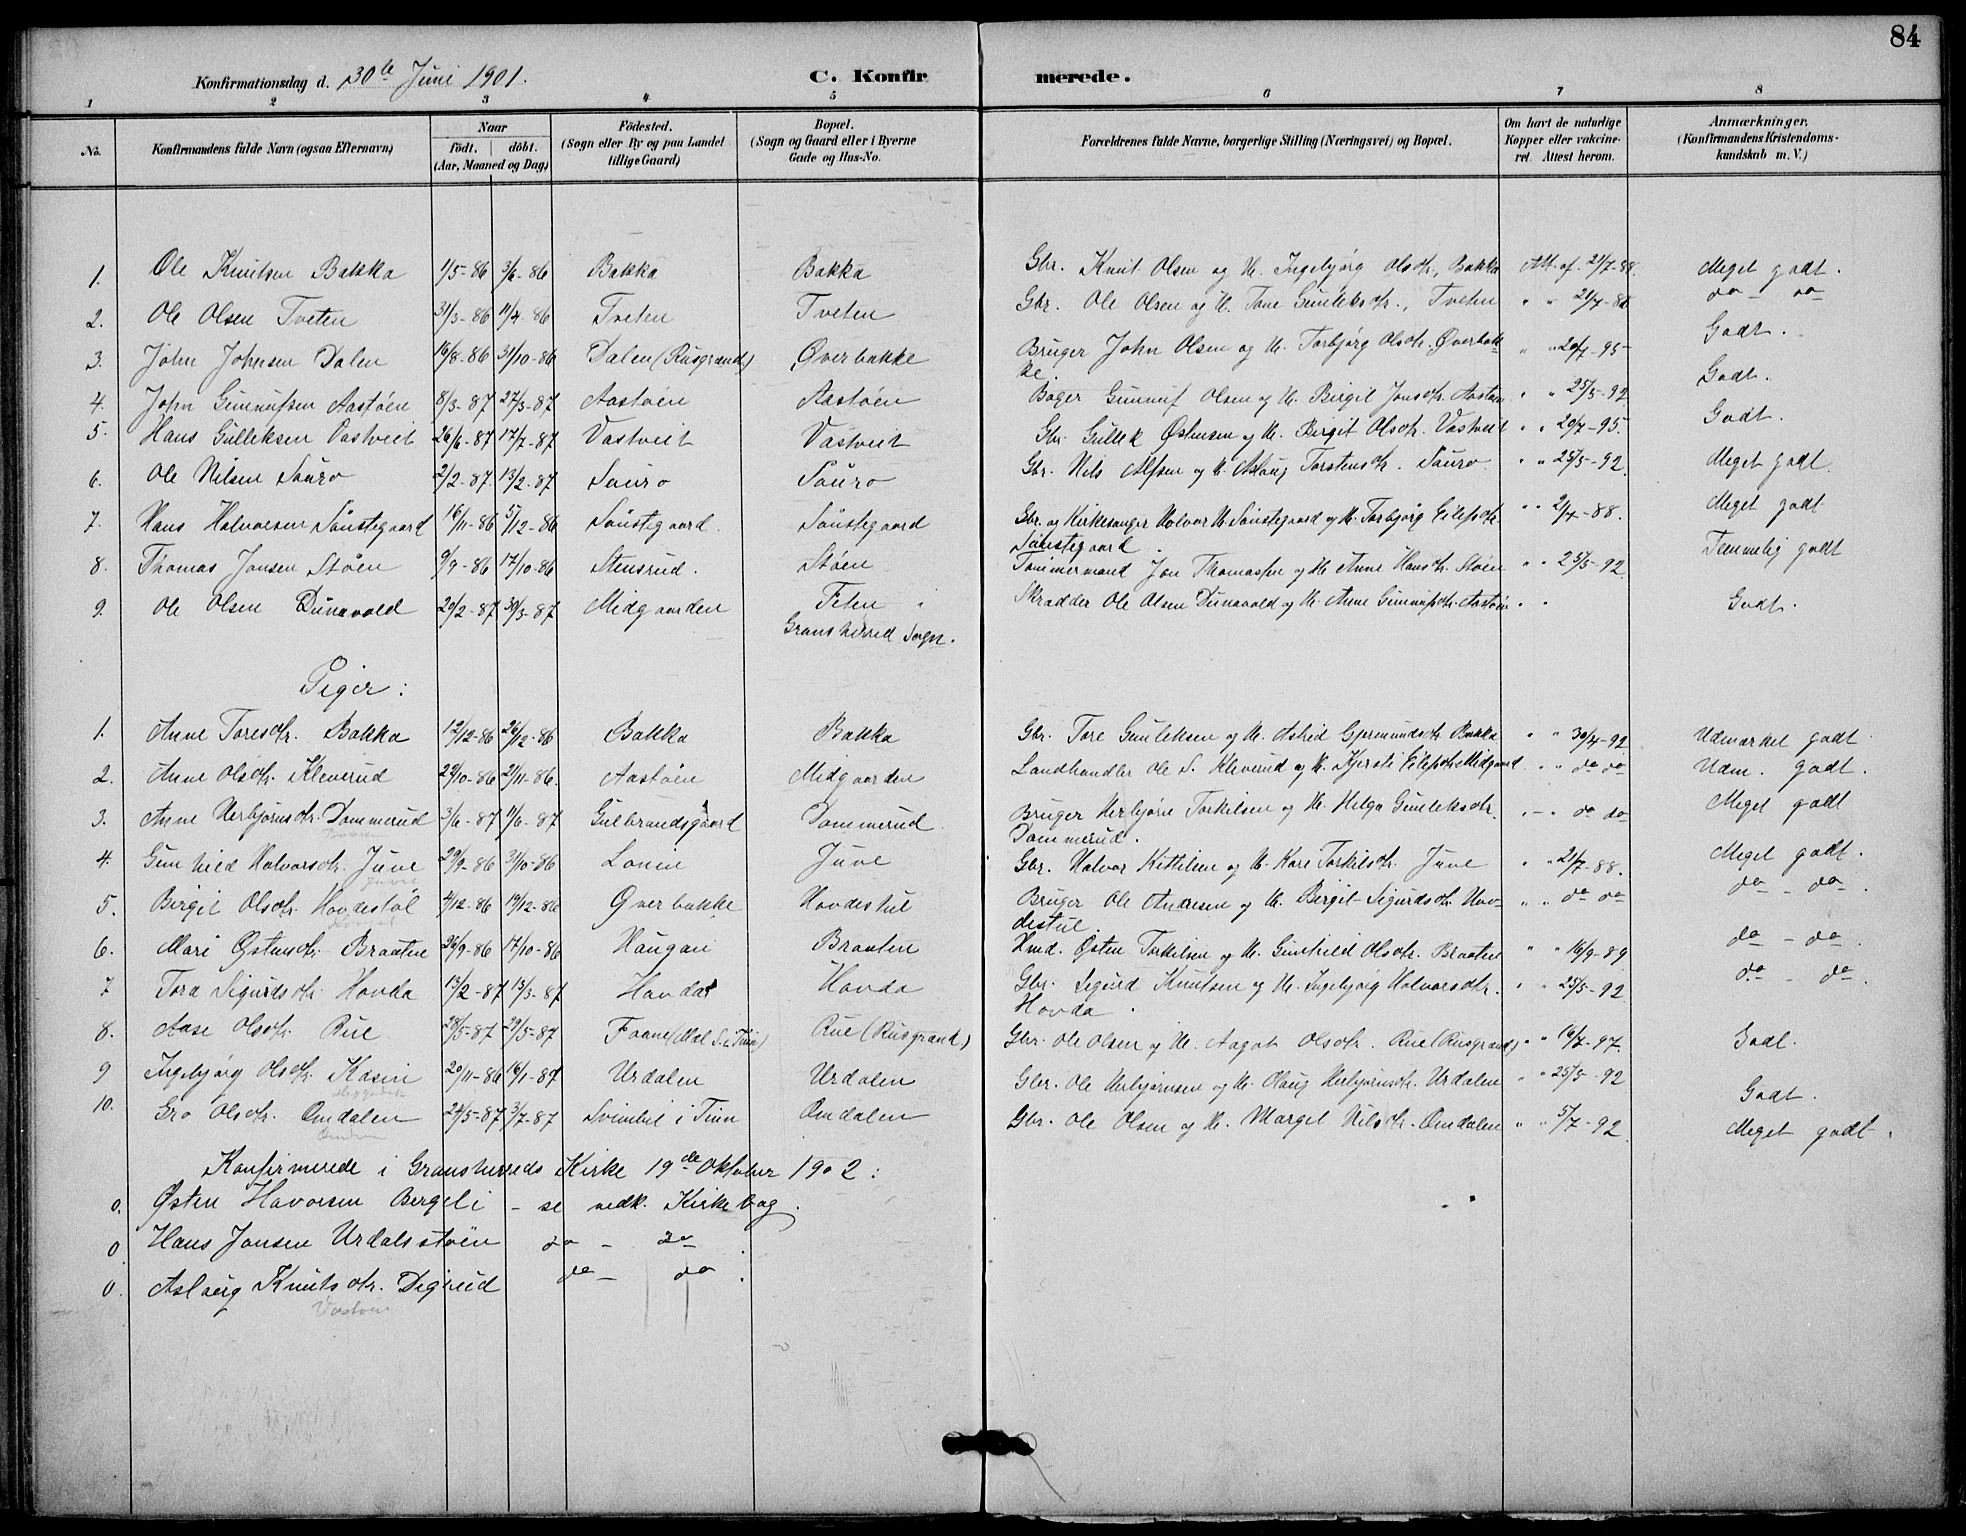 84
Konfirmationsdag d. 30te Juni 1901. C. Konfirmerede.
1 2 3 4 5 6 7 8
No. Konfirmandens fulde Navn (ogsaa Efternavn) Naar født. døbt. (Aar, Maaned og Dag) Fødested. (Sogn eller By og paa Landet tillige Gaard) Bopæl. (Sogn og Gaard eller i Byerne Gade og Hus-No. Forældrenes fulde Navne, borgerlige Stilling (Næringsvei) og Bopæl. Om havt de naturlige Kopper eller vakcineret. Attest herom. Anmærkninger, (Konfirmandens Kristendomskundskab m. V.)
1. Ole Knutsen Bakka 1/5-86 3/6-86 Bakka Bakka Gbr. Knut Olsen og H. Ingebjørg Olsdtr., Bakka Att. af. 21/7-88. Meget godt.
2. Ole Olsen Tveten 31/3-86 11/4-86 Tveten Tveten Gbr. Ole Olsen og H. Tone Gunleksdtr., Tveten " " 21/7-88 do - do
3. John Johnsen Dalen 16/8-86 31/10-86 Dalen (Rusgrænd) Øverbakke Bruger John Olsen og H. Torbjørg Olsdtr. Øverbakke. " " 20/7-95 Godt.
4. John Gunnufsen Aastøen 8/3-87 27/3-87 Aastøen Aastøen Bøger Gunnuf Olsen og H. Birgit Jonsdtr. Aastøen " " 25/5-92 Godt.
5. Hans Gulleksen Vastveit 26/6-87 17/7-87 Vastveit Vastveit Gbr. Gullek Østensen og H. Birgit Olsdtr. Vastveit " " 20/7-95. Godt.
6. Ole Nilsen Sauro 2/2-87. 13/2-87 Sauro Sauro Gbr. Nils Alfsen og H. Aslaug Torstensdtr. Sauro. " " 25/5-92. Meget godt.
7. Hans Halvorsen Sønstegaard 16/11-86 5/12-86 Sønstegaard. Sønstegaard Gbr. og Kirkesanger Halvor H. Sønstegaard og H. Torbjørg Eilefsdtr. Sønstegaard. " " 2/7-88. Meget godt
8. Thomas Jonsen Støen 9/9-86 17/10-86 Stensrud. Støen Tømmermand Jon Thomassen og H. Anne Hansdtr. Støen " " 25/5-92. Temmelig godt
9. Ole Olsen Dunavold 20/2-87 30/3-87 Midgaarden Feten i Skrædder Ole Olsen Dunavold og H. Anne Gunnufsdtr. Aastøen " " Godt.
Gransherred Sogn.
Piger:
1. Anne Toresdtr. Bakka 12/12-86 26/12-86 Bakka Bakka Gbr. Tore Gunleksen og H. Astrid Gjermundsdtr. Bakka " " 30/4-92 Udmærket godt
2. Anne Olsdtr. Kleverud 29/10-86 21/11-86. Aastøen Midgaarden Landhandler Ole S. Kleverud og H. Kjersti Eilefsdtr. Midgaard " " do do Udm. godt.
3. Anne Herbjørnsdtr. Dommerud 3/6-87 11/6-87 Gulbrandsgaard Dommerud. Bruger Herbjørn Torkilsen og H. Helga Gunleksdtr. Dommerud. " - " do do Meget godt
4. Gunhild Halvorsdtr. Juve 29/9-86 31/10-86 Lonin Juve Gbr. Halvor Kittilsen og H. Kare Torkilsdtr. Juve " " 21/7-88. Meget godt.
5. Birgit Olsdtr. Hovdestøl 4/12-86 19/12-86 Øverbakke Hovdestul Bruger Ole Andresen og H. Birgit Sigurdsdtr. Hovdestul. " " do do do - do.
6. Mari Østensdtr. Braaten 26/9-86 17/10-86 Haugan Braaten Hmd. Østen Torkilsen og H. Gunhild Olsdtr. Braaten " " 16/9-89 do - do.
7 Tora Sigurdsdtr. Hovda 13/2-87 13/3-87 Hovda Hovda Gbr. Sigurd Knutsen og H. Ingebjørg Halvorsdtr. Hovda. " " 25/5-92 do - do.
8. Aase Olsdtr. Rue 28/5-87 29/5-87 Faane (Mæl S. i Tinn) Rue (Rusgrænd) Gbr. Ole Olsen og H. Aagot Olsdtr. Rue (Rusgrænd) " " 16/7-97. Godt.
9 Ingebjørg Olsdtr. Kasin 20/11-86 16/1-87 Urdalen Urdalen Gbr. Ole Herbjørnsen og H. Olaug Herbjørnsdtr. Urdalen " " 25/5-92 Godt.
10. Gro Olsdtr. Omdalen 24/5-87 3/7-87 Svinhil i Tinn Omdalen Gbr. Ole Olsen og H. Margit Nilsdtr. Omdalen " " 5/7-92. Meget godt.
Konfirmerede i Gransherreds Kirke 19de Oktober 1902:
0. Østen Havorsen Bergeli - se vedk. Kirkebog.
0. Hans Jonsen Urdalsstøen do - do.
0. Aslaug Knutsdtr. Digrud do - do.